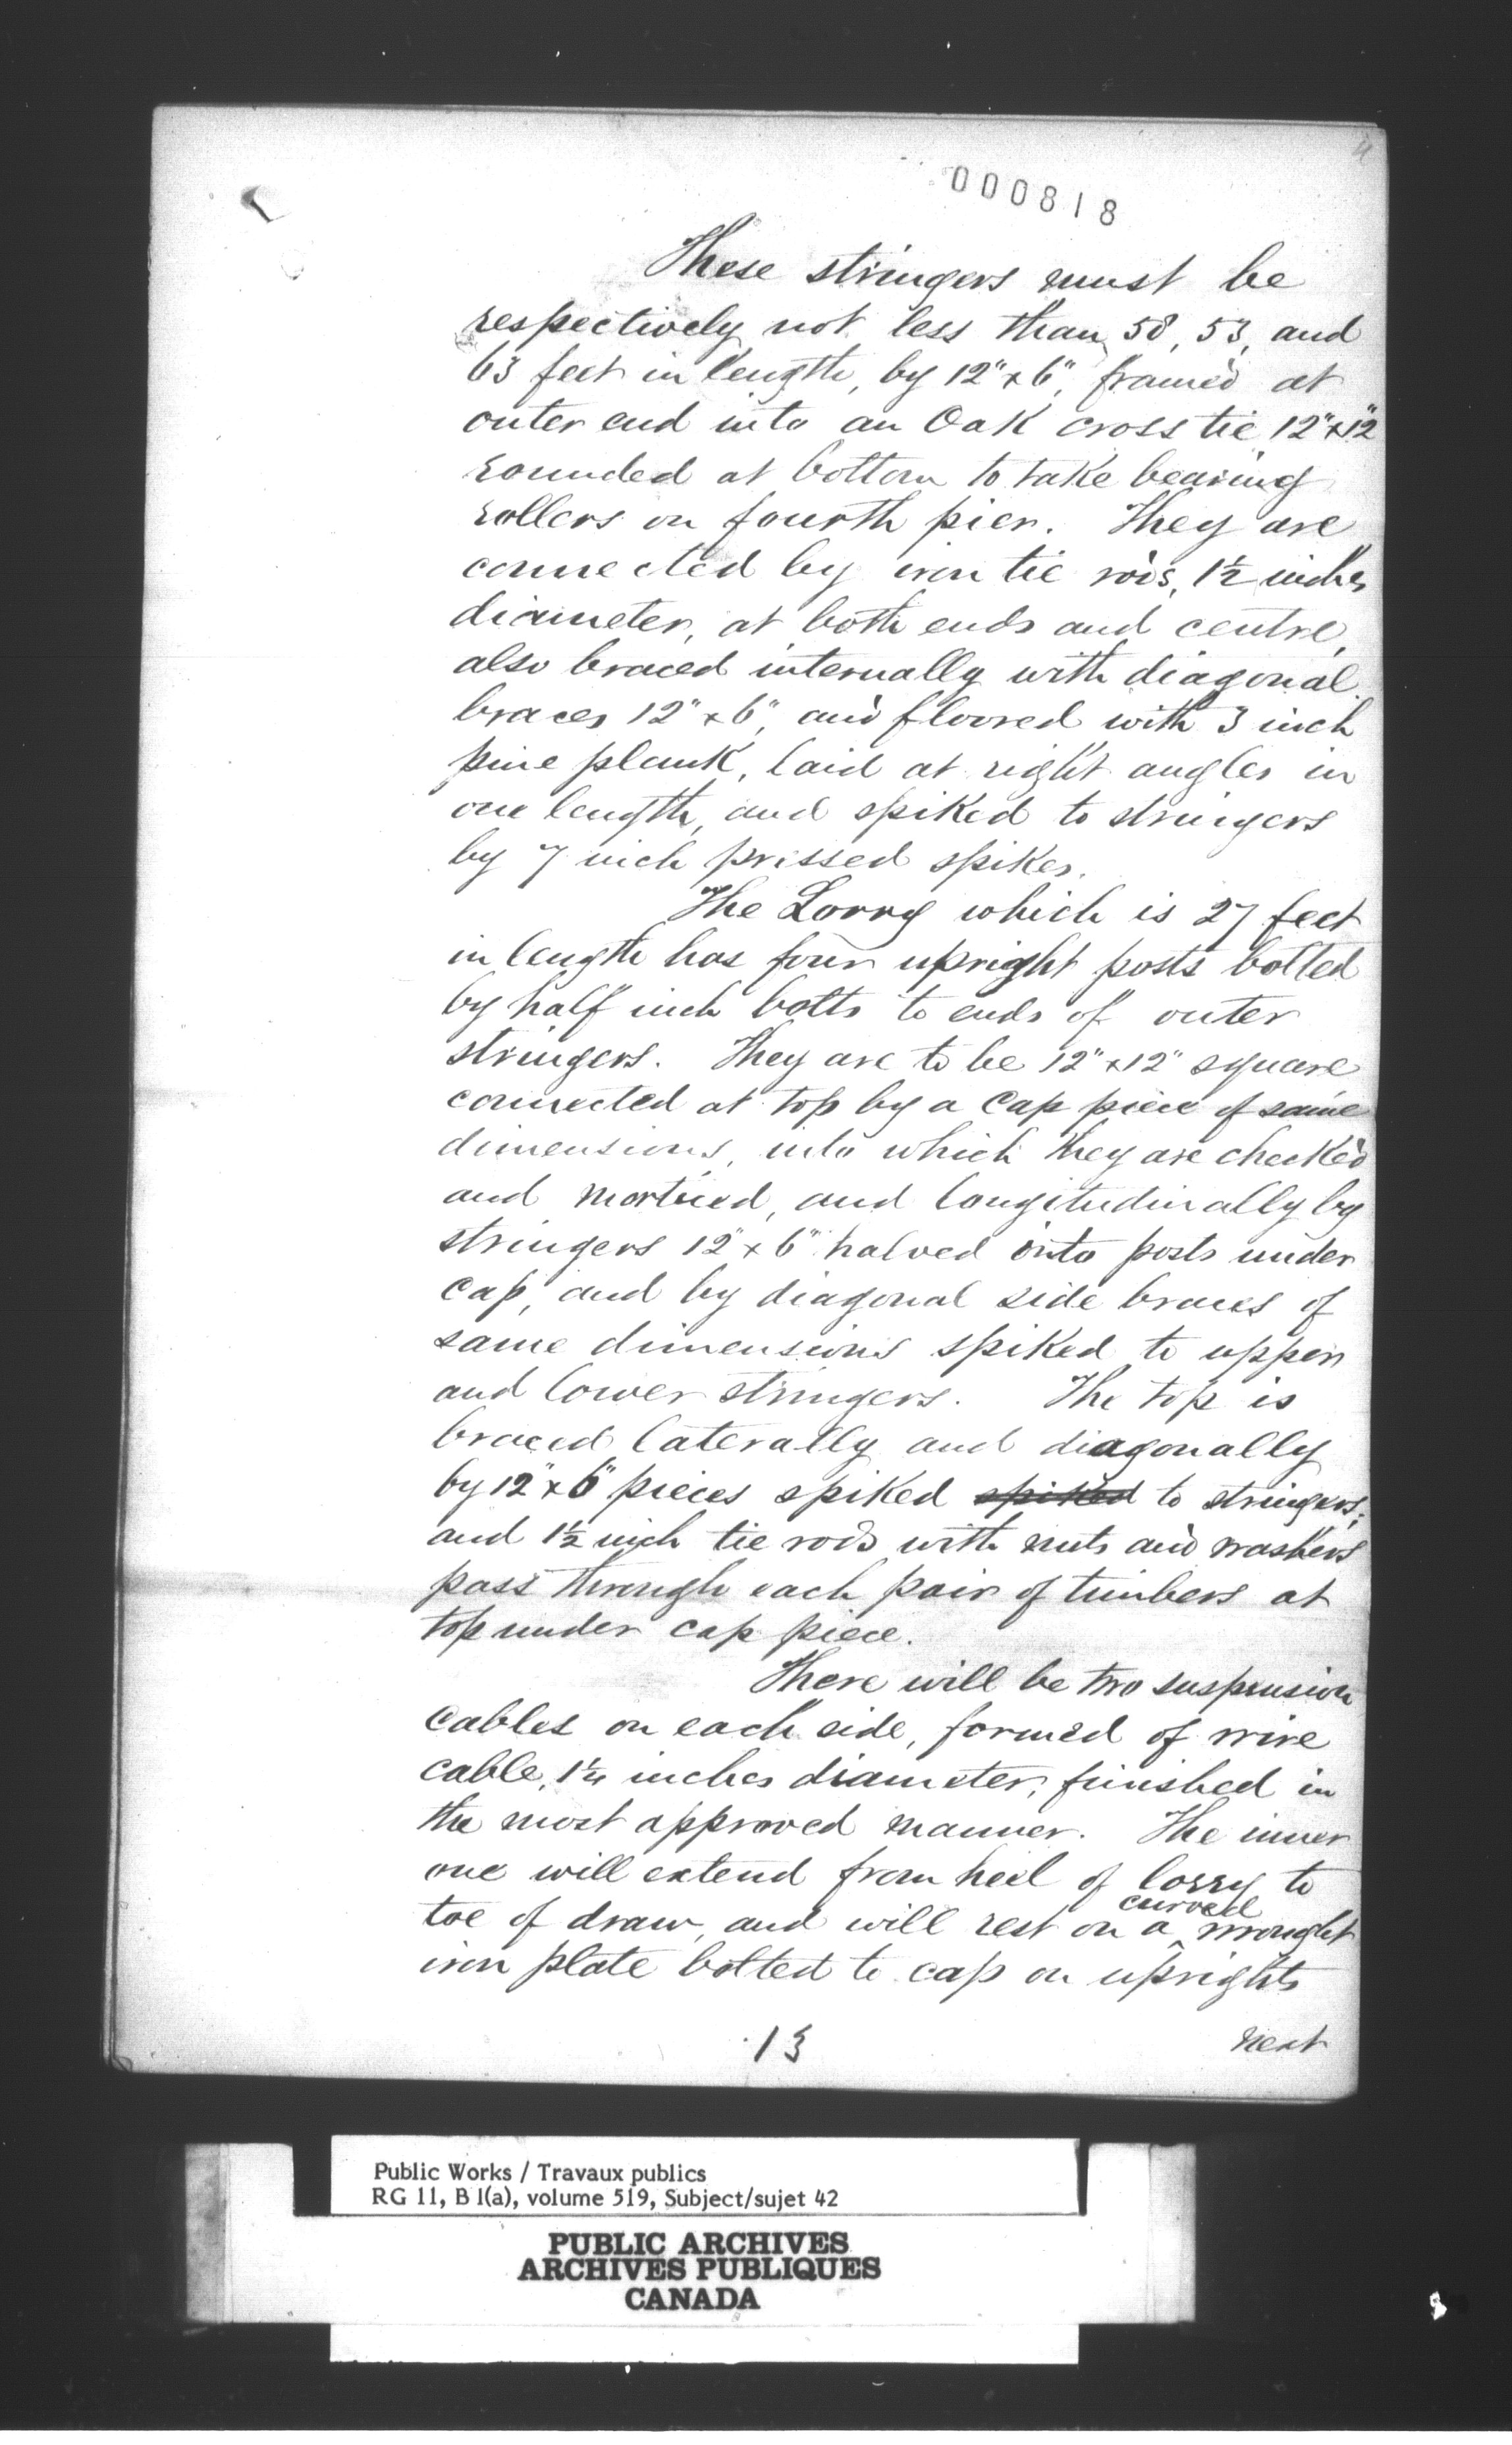 000818
4
These stringers must be
respectively not less than 58, 53, and
63 feet in length, by 12" x 6", framed at
outer end into an Oak cross tie 12" x 12"
rounded at bottom to take bearing
rollers on fourth pier. They are
connected by iron tie rods, 1½ inches
diameter, at both ends and centre,
also braced internally with diagonal
braces 12" x 6", and floored with 3 inch
pine plank, laid at right angles in
one length, and spiked to stringers
by 7 inch pressed spikes.
The Lorry which is 27 feet
in length has four upright posts bolted
by half inch bolts to ends of outer
stringers. They are to be 12" x 12" square
connected at top by a cap piece of same
dimensions, into which they are checked
and morticed, and longitudinally by
stringers 12" x 6" halved into posts under
cap, and by diagonal side braces of
same dimensions spiked to upper
and lower stringers. The top is
braced laterally and diagonally
by 12" x 6" pieces spiked spiked to stringers;
and 1½ inch tie rods with nuts and washers
pass through each pair of timbers at
top under cap piece.
There will be two suspension
cables on each side, formed of wire
cable, 1¼ inches diameter, finished in
the most approved manner. The inner
one will extend from heel of lorry to
toe of draw, and will rest on a curved wrought
iron plate bolted to cap on uprights
13
next
Public Works / Travaux publics
RG 11, B 1(a), volume 519, Subject/sujet 42
PUBLIC ARCHIVES
ARCHIVES PUBLIQUES
CANADA